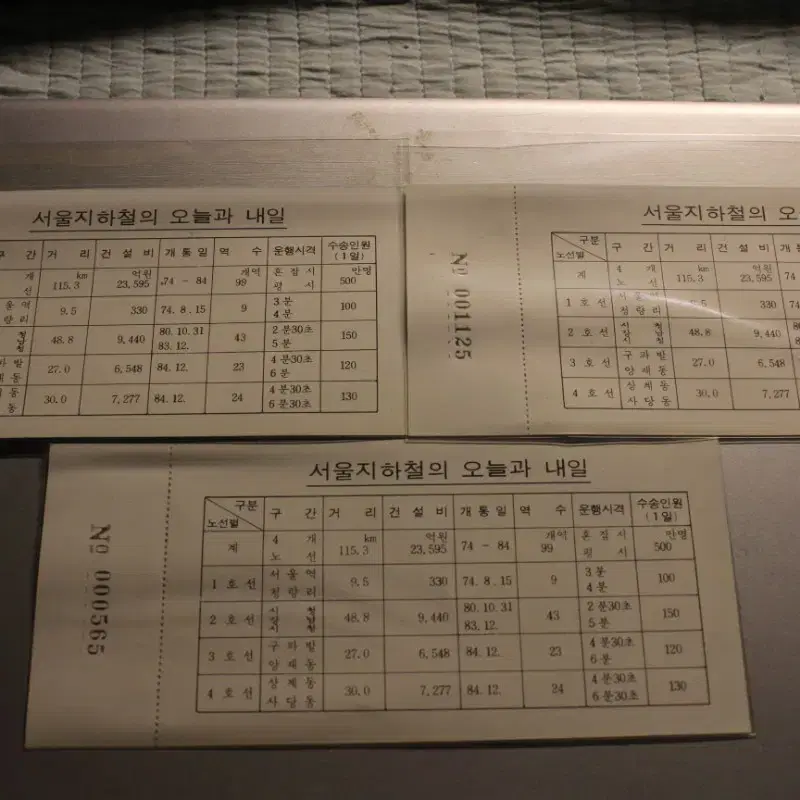 서울지하철의 오늘과 내일
구 간 거 리 건 설 비 개 통 일 역 수 운행시격 수송인원 (1일)
개 노선 km 115.3 억원 23,595 74 - 84 개역 99 혼잡시 평 시 만명 500
9.5 330 74.8.15 9 3분 4분 100
48.8 9,440 80.10.31 83.12. 43 2분30초 5분 150
27.0 6,548 84.12. 23 4분30초 6분 120
30.0 7,277 84.12. 24 4분30초 6분30초 130
№ 001125
서울지하철의 오
구분 노선별 구 간 거 리 건 설 비
계 4 개 노 선 km 115.3 억원 23,595 74
1 호선 서울역 청량리 330
2 호선 48.8 9,440
3 호선 구파발 양재동 27.0 6,548
4 호선 상계동 사당동 30.0 7,277
№ 000565
서울지하철의 오늘과 내일
구분 노선별 구 간 거 리 건 설 비 개 통 일 역 수 운행시격 수송인원 (1일)
계 4 개 노 선 km 115.3 억원 23,595 74 - 84 개역 99 혼잡시 평 시 만명 500
1 호선 서울역 청량리 9.5 330 74.8.15 9 3분 4분 100
2 호선 48.8 9,440 80.10.31 83.12. 43 2분30초 5분 150
3 호선 구파발 양재동 27.0 6,548 84.12. 23 4분30초 6분 120
4 호선 상계동 사당동 30.0 7,277 84.12. 24 4분30초 6분30초 130